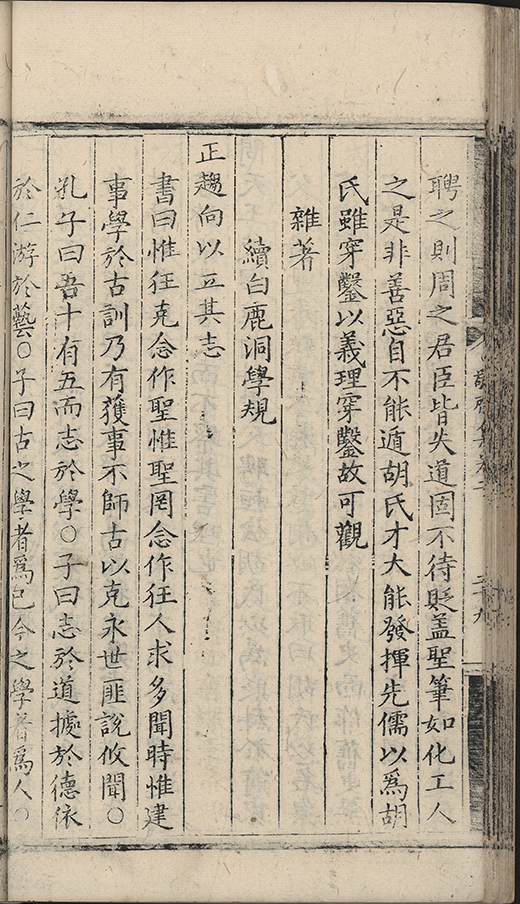 聘之則周之君臣皆失道固不待貶盖聖筆如化工人
之是非善惡自不能遁胡氏才大能發揮先儒以爲胡
氏雖穿鑿以義理穿鑿故可觀
雜著
續白鹿洞學規
正趨向以立其志
書曰惟狂克念作聖惟聖罔念作狂人求多聞時惟建
事學於古訓乃有獲事不師古以克永世匪說攸聞○
孔子曰吾十有五而志於學○子曰志於道據於德依
於仁游於藝○子曰古之學者爲己今之學者爲人○